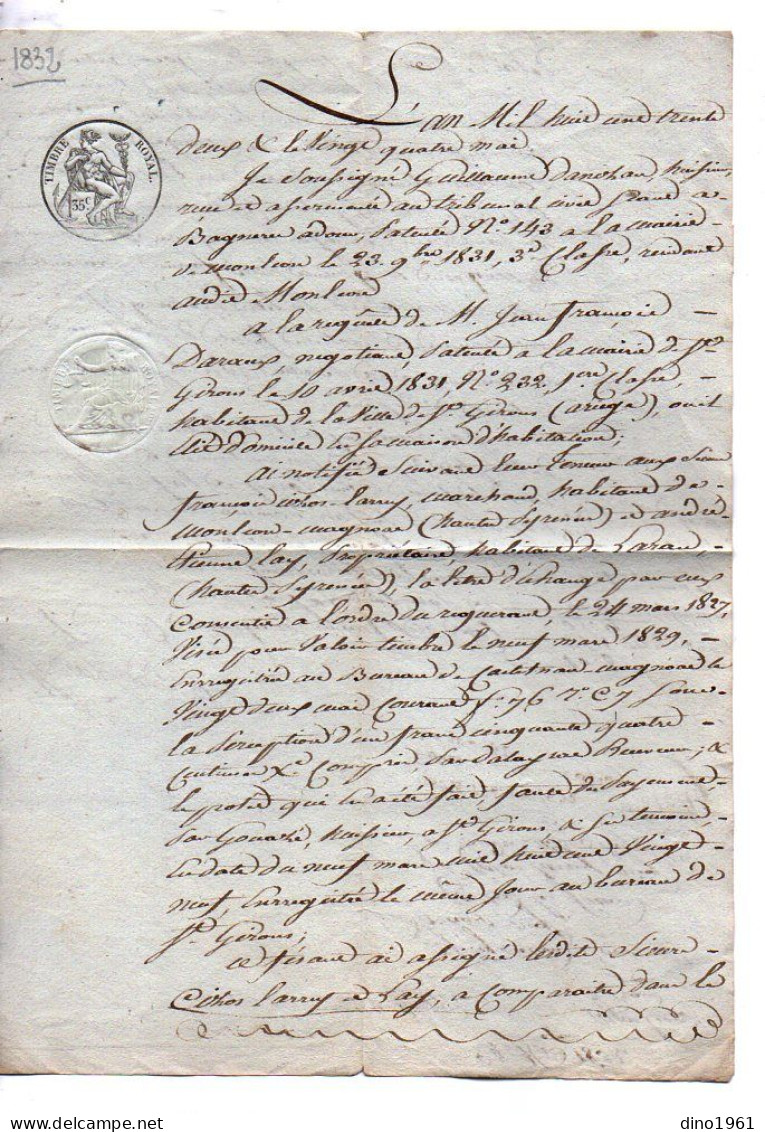 1832
TIMBRE ROYAL.
35 C
L'an Mil huit cent trente
deux & le Vingt quatre mai
Je soussigné Guillaume Danohan, huissier
assermenté au tribunal civil séant a
Bagneres adour, patenté N° 143 a la mairie
de monleon le 23 9bre 1831, 3e Classe, résidant
audit Monleon
a la requête de M. Jean françois
Daraux, negotiant, patenté a la mairie de St
Girons le 10 avril 1831, N° 232. 1ere Classe,
habitant de la Ville de St Girons (ariege), ou il
élit domicile en sa maison d'habitation;
ai notifié suivant leur teneur aux Sieurs
françois Cihos-larrey, marchand, habitant de
monleon-magnoac (hautes Pyrenées) et andré
étienne lay, propriétaire, habitant de Laran,
(hautes Pyrenées), la lettre d'échange par eux
consentie a l'ordre du requerant, le 24 mars 1827,
Visée pour valoir timbre le neuf mars 1829,
Enregistrée au Bureau de Castelnau magnoac le
Vingt deux mai Courant f° 76 V° C 7 sous
la perception d'un franc cinquante quatre
Centimes Xe Compris, par Receveur; &
le protêt qui en a été fait, faute de payement,
par Gouazé, huissier, a St Girons, & ses temoins,
en date du neuf mars mil huit cent Vingt
neuf, Enregistré le même jour au bureau de
St Girons;
ce fesant ai assigné lesdits Sieurs
Cihos larrey et Lay, a Comparaitre dans le
dino1961